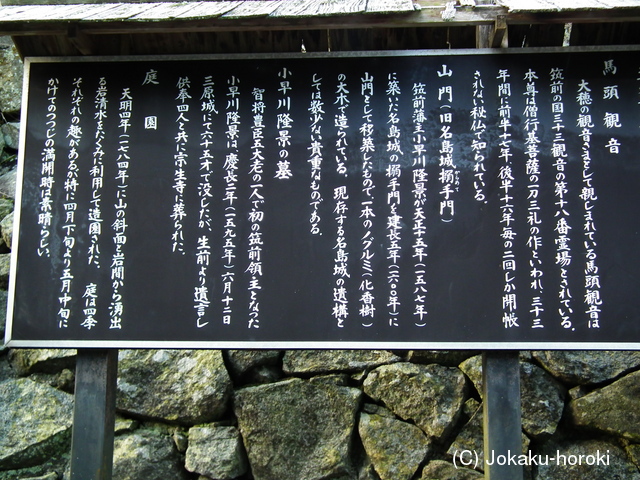 馬頭観音
大穂の観音さまとして親しまれている馬頭観音は
筑前の国三十三観音の第十八番霊場とされている。
本尊は僧行基菩薩の一刀三礼の作といわれ、三十三
年間に前半十七年、後半十六年毎の二回しか開帳
されない秘仏で知られている。
山門(旧名島城搦手門)
からめて
筑前藩主小早川隆景が天正十五年(一五八七年)
に築いた名島城の搦手門を建長五年(一六〇〇年)に
山門として移築したもので一本のノグルミ(化香樹)
の大木で造られている。現存する名島城の遺構と
しては数少ない貴重なものである。
小早川隆景の墓
智将豊臣五大老の一人で初の筑前領主となった
小早川隆景は、慶長二年(一五九五年)六月十二日
三原城にて六十五才で没したが、生前より遺言し
供奉四人と共に宗生寺に葬られた。
庭園
天明四年(一七八四年)に山の斜面と岩間から湧出
る岩清水をたくみに利用して造園された。庭は四季
それぞれの趣があるが特に四月下旬より五月中旬に
かけてのつつじの満開時は素晴らしい。
(C) Jokaku-horoki